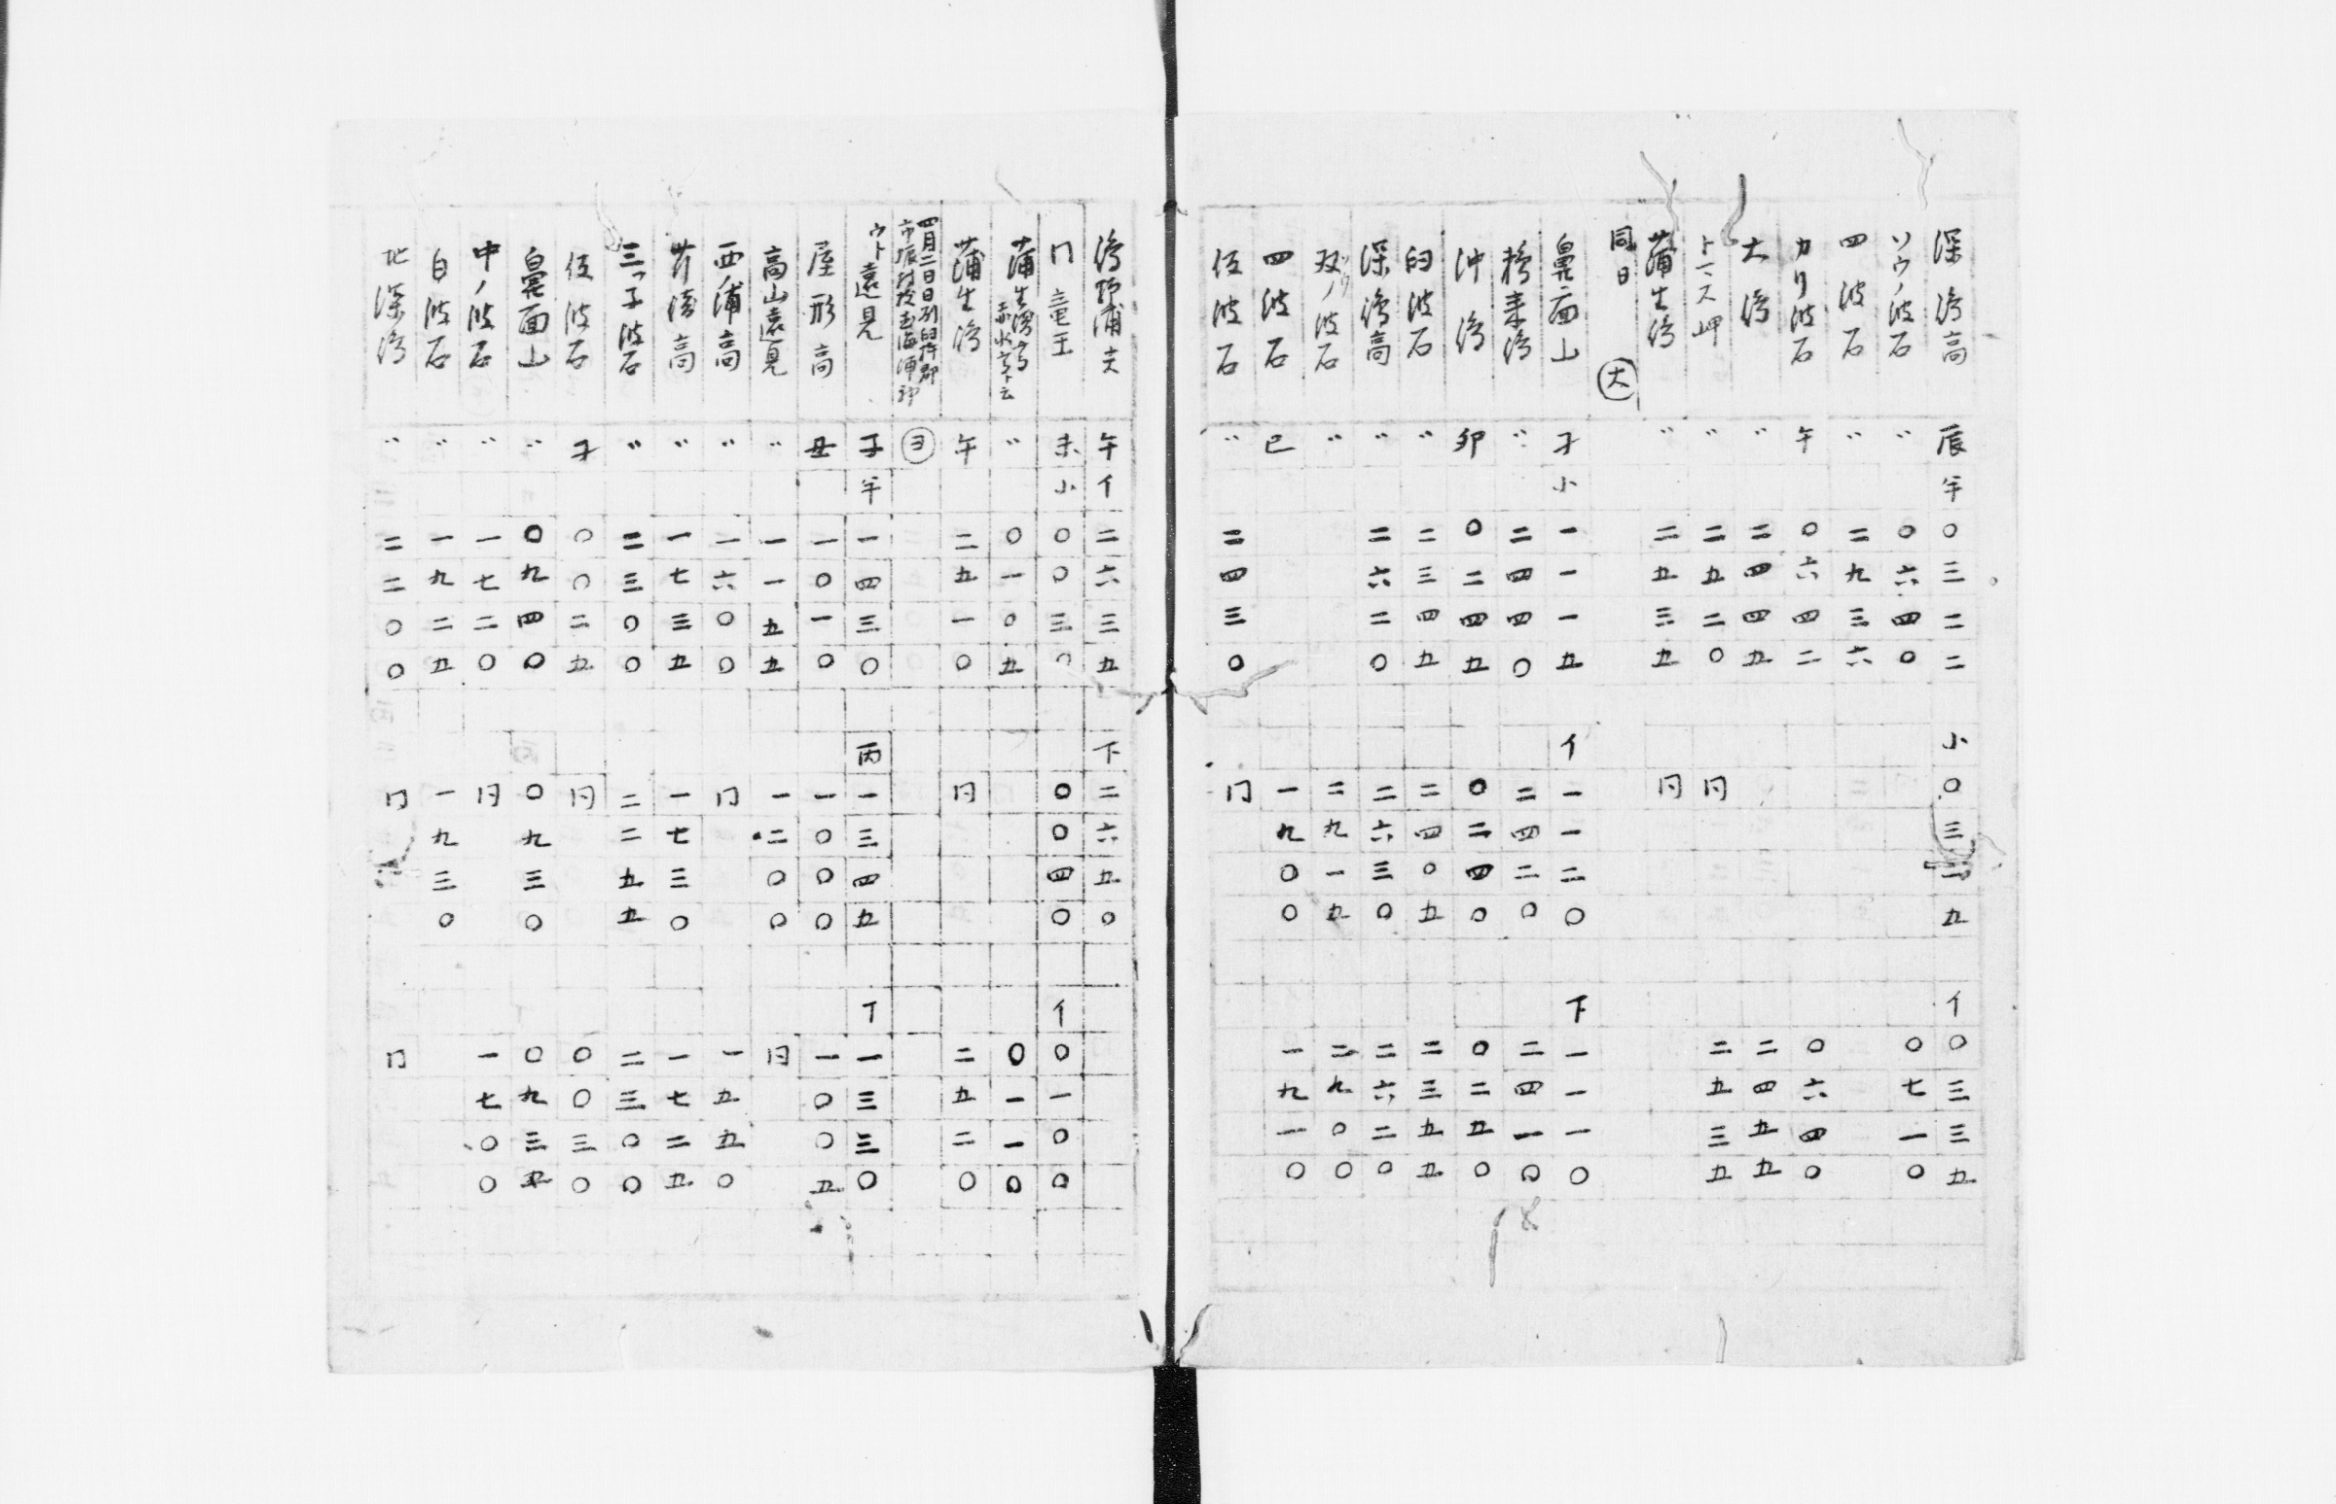 深湾高 辰半 〇三二二 小 〇三一五 イ 〇三三五
ソウノ波石 〃 〇六四〇 〇七一〇
四波石 〃 二九三六
カリ波石 午 〇六四二 〇六四〇
大湾 〃 二四四五 二四五五
トース岬 〃 二五二〇 同 二五三五
蒲生湾 〃 二五三五 同
同日 大
鼻面山 子小 一一一五 イ 一一二〇 下 一一一〇
湾 〃 二四四〇 二四二〇 二四一〇
沖湾 卯 〇二四五 〇二四〇 〇二五〇
臼波石 〃 二三四五 二四〇五 二三五五
深湾高 〃 二六二〇 二六三〇 二六二〇
双ノ波石 〃 二九一五 二九〇〇
四波石 巳 一九〇〇 一九一〇
伍波石 〃 二四三〇 同
湾 浦 午イ 二六三五 下 二六五〇
同 竜王 未小 〇〇三〇 〇〇四〇 イ 〇一〇〇
蒲生湾 赤水 ト云 〃 〇一〇五 〇一一〇
蒲生湾 午 二五一〇 同 二五二〇
四月二日 臼杵郡 市振村 ヨ
ウト遠見 子半 一四三〇 丙 一三四五 丁 一三三〇
屋形高 丑 一〇一〇 一〇〇〇 一〇〇五
高山遠見 〃 一一五五 一二〇〇 同
西ノ浦高 〃 一六〇〇 同 一五五〇
高 〃 一七三五 一七三〇 一七二五
三ツ子波石 〃 二三〇〇 二二五五 二三〇〇
伍波石 子 〇〇二五 同 〇〇三〇
鼻面山 〃 〇九四〇 〇九三〇 〇九三五
中ノ波石 〃 一七二〇 同 一七〇〇
白波石 〃 一九二五 一九三〇
北深湾 〃 二二〇〇 同 同